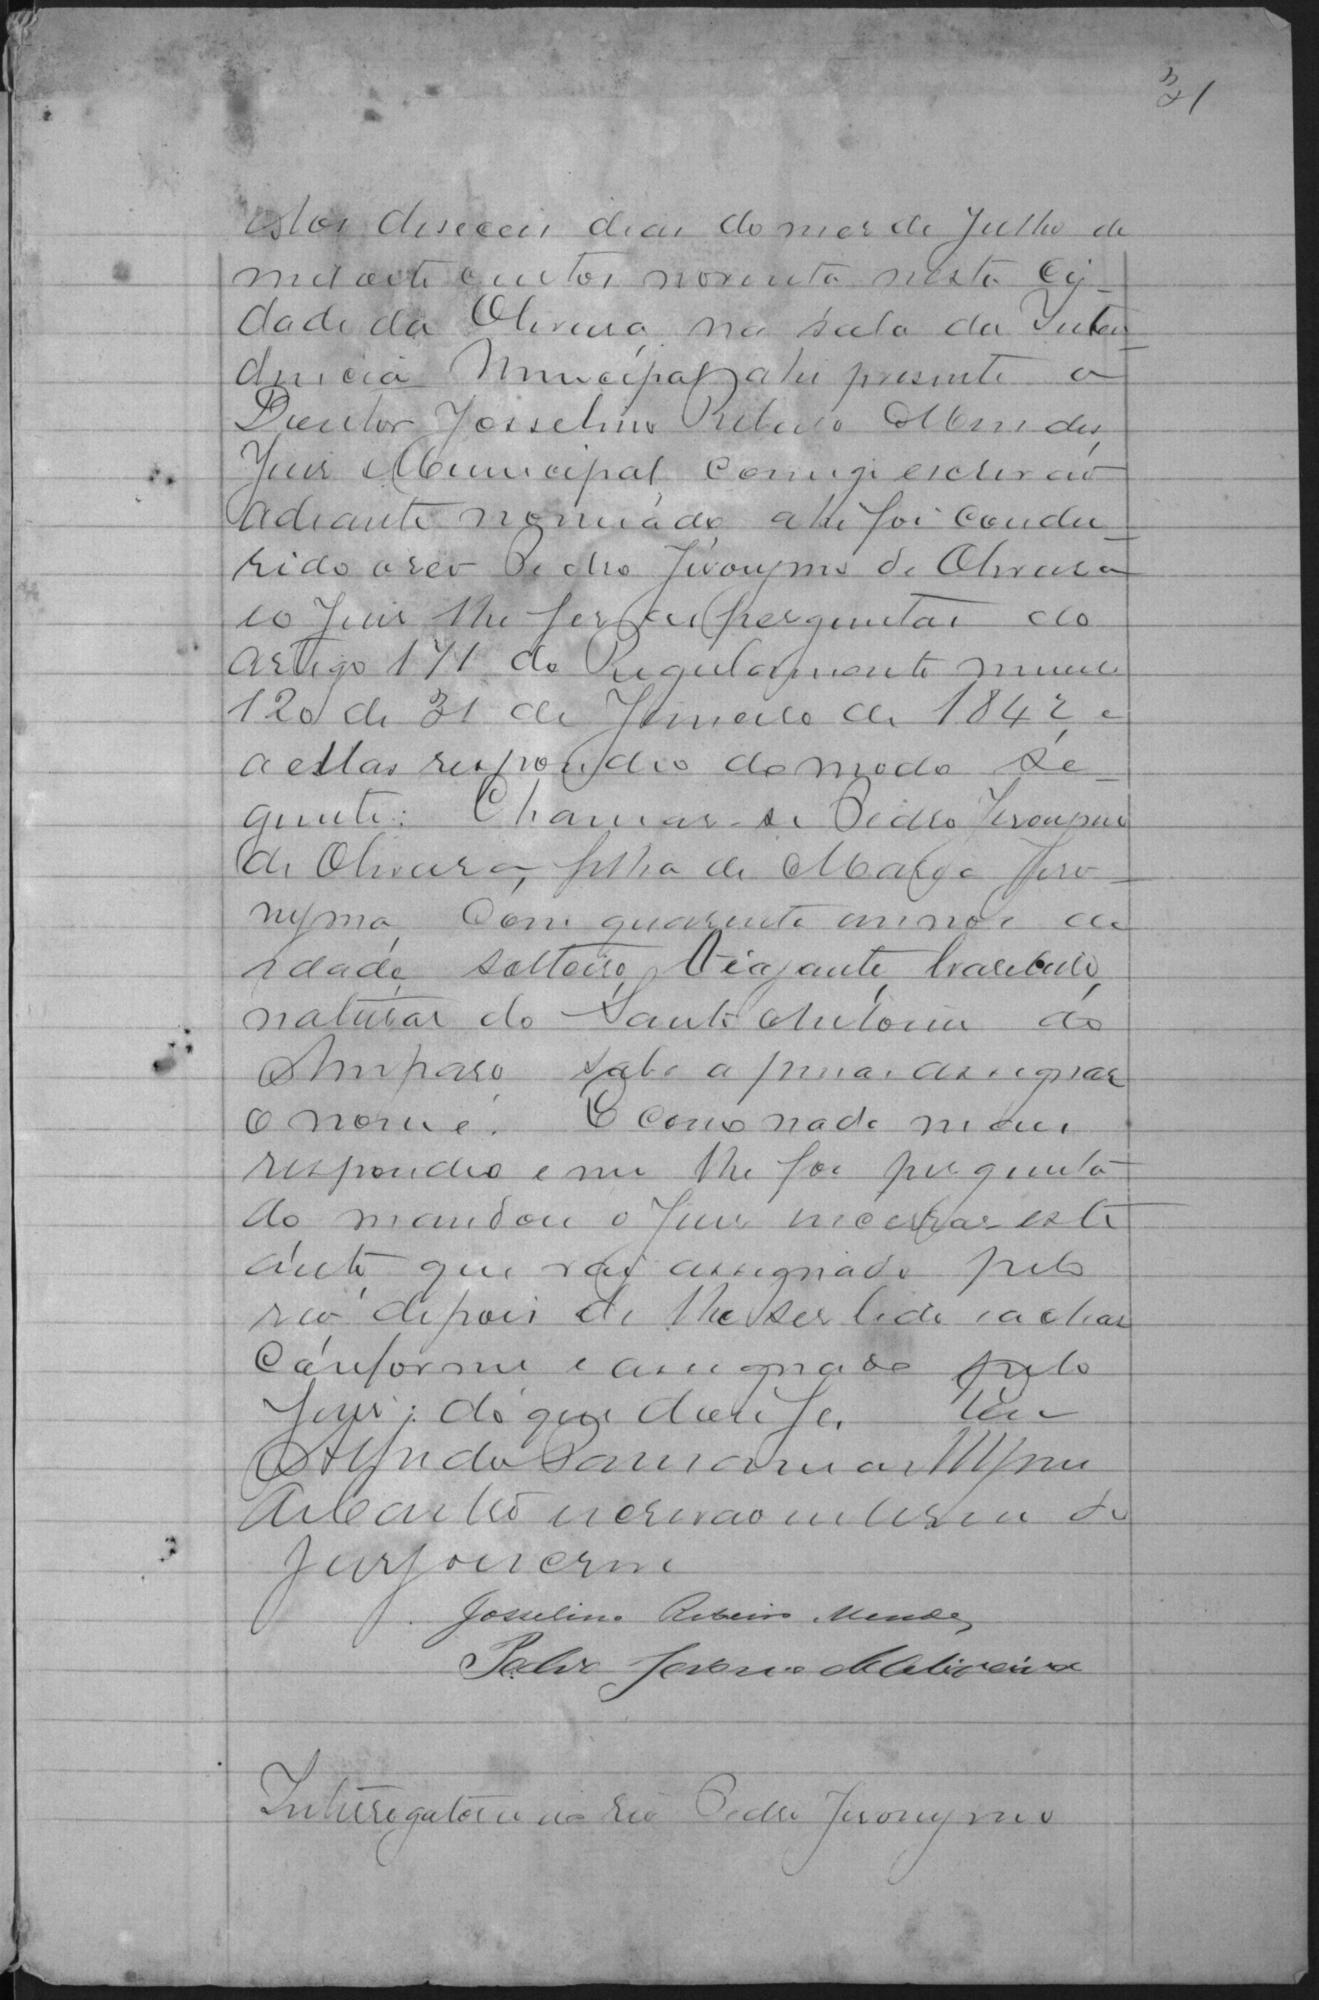 31
Aos deseceis dias do mes de Julho de
mil oite centos noventa nesta Ci-
dade da Oliveira, na sala da Inten-
dencia Municipal ahi presente o
Doutor Josselino Ribeiro Mendes,
Juis Municipal comigo escrivão
adiante nomeado, ahi foi condu-
sido o reo Pedro Jeronymo de Oliveira
e o Juis lhe fes as perguntas do
artigo 171 do Regulamento numero
120 de 31 de Janeiro de 1842 e
a ellas respondeo do modo se-
guinte: Chamar-se Pedro Jeronymo
de Oliveira, filho de Maria Jero-
nyma, com quarenta annos de
idade, solteiro, Viajante, brasileiro,
natural do Santo Antonio do
Amparo sabe apenas assignar
o nome. E como nada mais
respondeo e nem lhe foi pergunta-
do mandou o Juis encerrar este
auto que vai assignado pelo
reo depois de lhe ser lido e achar
conforme e assignado pelo
Juis; do que dou fe. Eu
Alfredo
de Castro escrivão interino do
Jury o escrevi
Josselino Ribeiro Mendes
Pedro Jeronimo de Oliveira
Interrogatorio ao reo Pedro Jeronymo